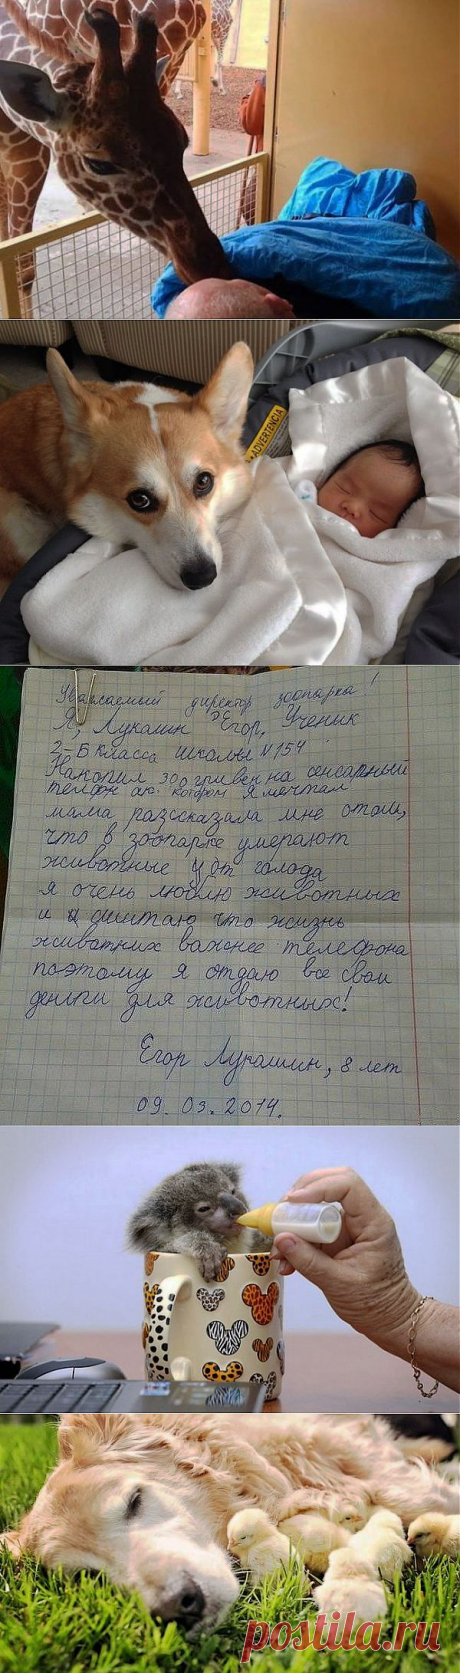 ADVERTENCIA
Уважаемый директор зоопарка!
Я, Лукашин Егор, Ученик
2-Б класса школы №154
Накопил 300 гривен на сенсарный
телефон о котором Я мечтал
мама разссказала мне отом,
что в зоопарке умерают
животные от голода
я очень люблю животных
и считаю что жизнь
животних важнее телефона
поэтому я отдаю все свои
деньги для животных!
Егор Лукашин, 8 лет
09.03.2014.
postila.ru